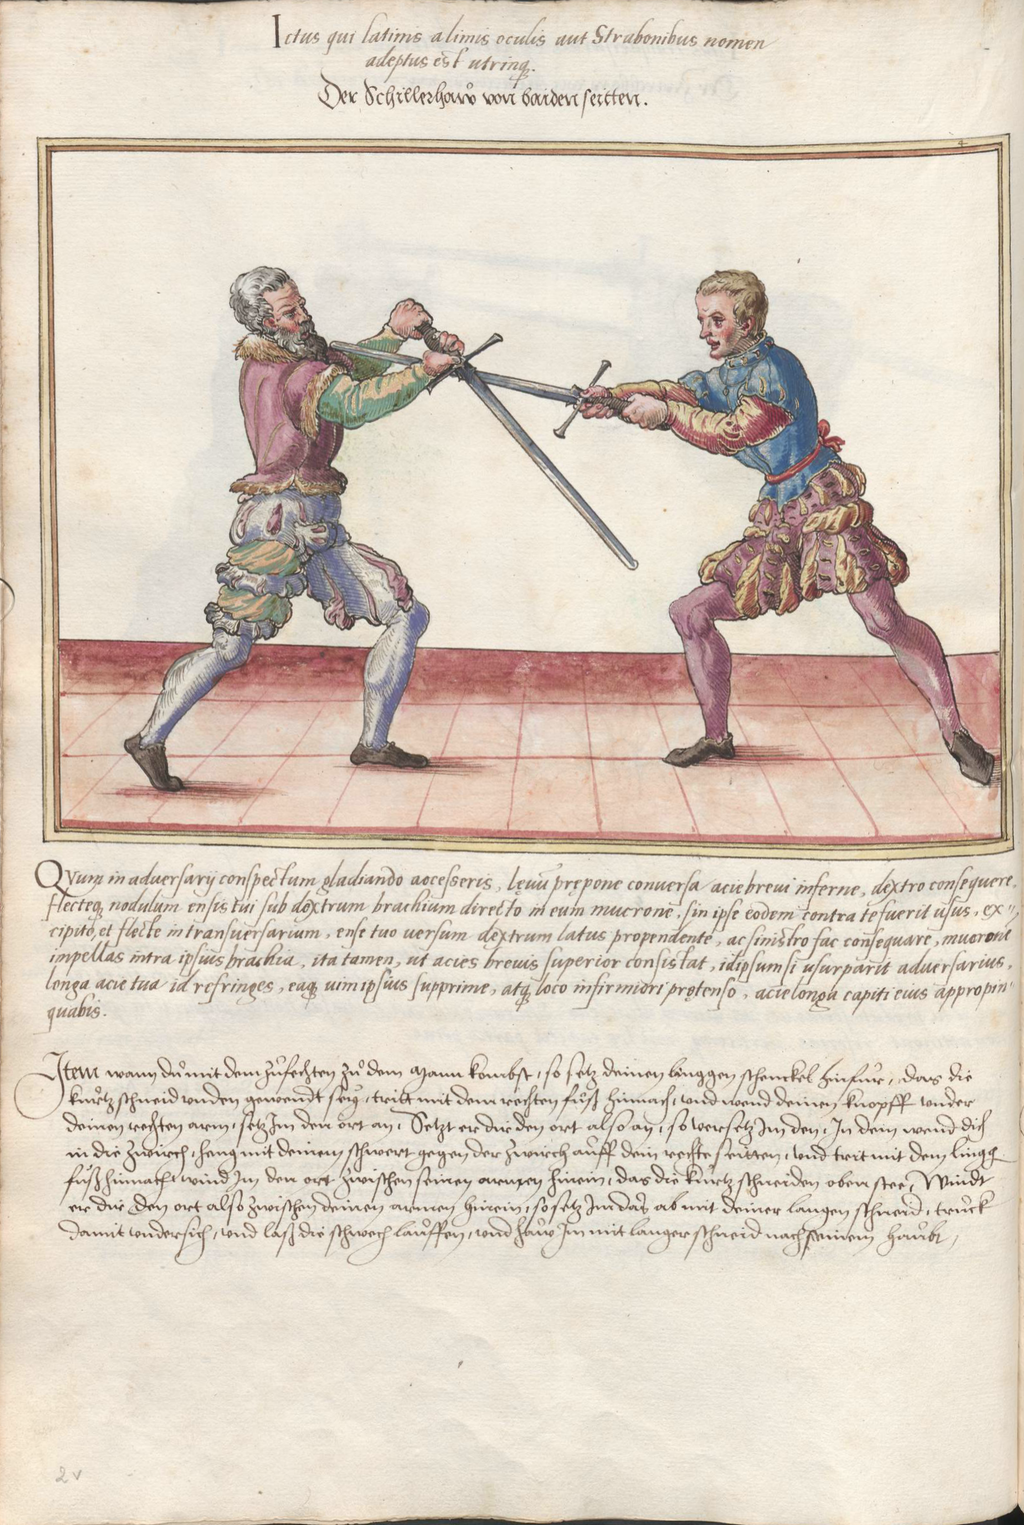 Ictus qui latinis a limis oculis aut Strabonibus nomen
adeptus est utrinq.
Der Schillerhaw von baiden seitten.
4
QVum in adversarij conspectum gladiando accesseris, levu prepone conversa acie brevi inferne, dextro consequere,
flecteq nodulum ensis tui sub dextrum brachium directo in eum mucrone, sin ipse eodem contra te fuerit usus, ex¬
cipito, et flecte in transversarium, ense tuo versum dextrum latus propendente, ac sinistro fac consequare, mucrone
impellas intra ipsius brachia, ita tamen, ut acies brevis superior consistat, id ipsum si usurparit adversarius,
longa acie tua id refringes, eaq vim ipsius supprime, atq loco infirmiori protenso, acie longa capiti eius appropin¬
quabis.
Item wann du mit dem zufechten zu dem Mann kombst, so setz deinen linggen schenckel hinfur, das die
kurtz schneid unden gewendt seig, tritt mit dem rechten fuß hinnach, und wend deinen knopff under
deinen rechten arm, setz Im den ort an, Setzt er dir den ort also an, so versetz Im den, In dem wend dich
in die zwirch, heng mit deinem schwert gegen der zwirch auff dein rechte seitten, und trit mit dem lingg
fuß hinnach wind Im den ort zwischen seinen armen hinein, das die kurtz schneiden oben stee, Windt
er dir den ort also zwischen deinen armen hinein, so setz Im das ab mit deiner langen schneid, truck
damit undersich, und laß die schwech lauffen, und haw Im mit langer schneid nach seinem haubt,
2v